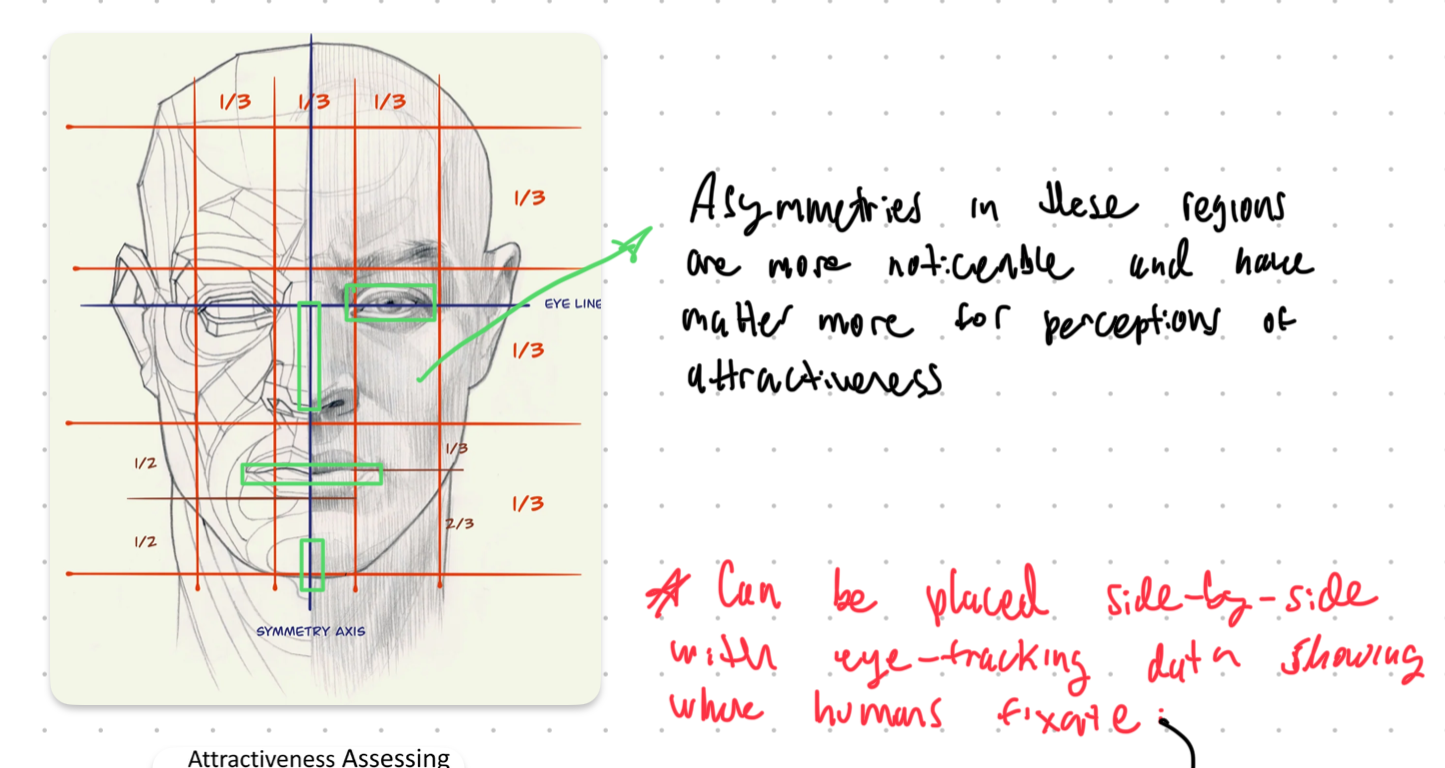 1/3 1/3 1/3
1/3
EYE LINE
1/3
1/3
1/2
1/3
2/3
1/2
SYMMETRY AXIS
Attractiveness Assessing
Asymmetries in these regions
are more noticeable and have
matter more for perceptions of
attractiveness
Can be placed side-by-side
with eye-tracking data showing
where humans fixate: